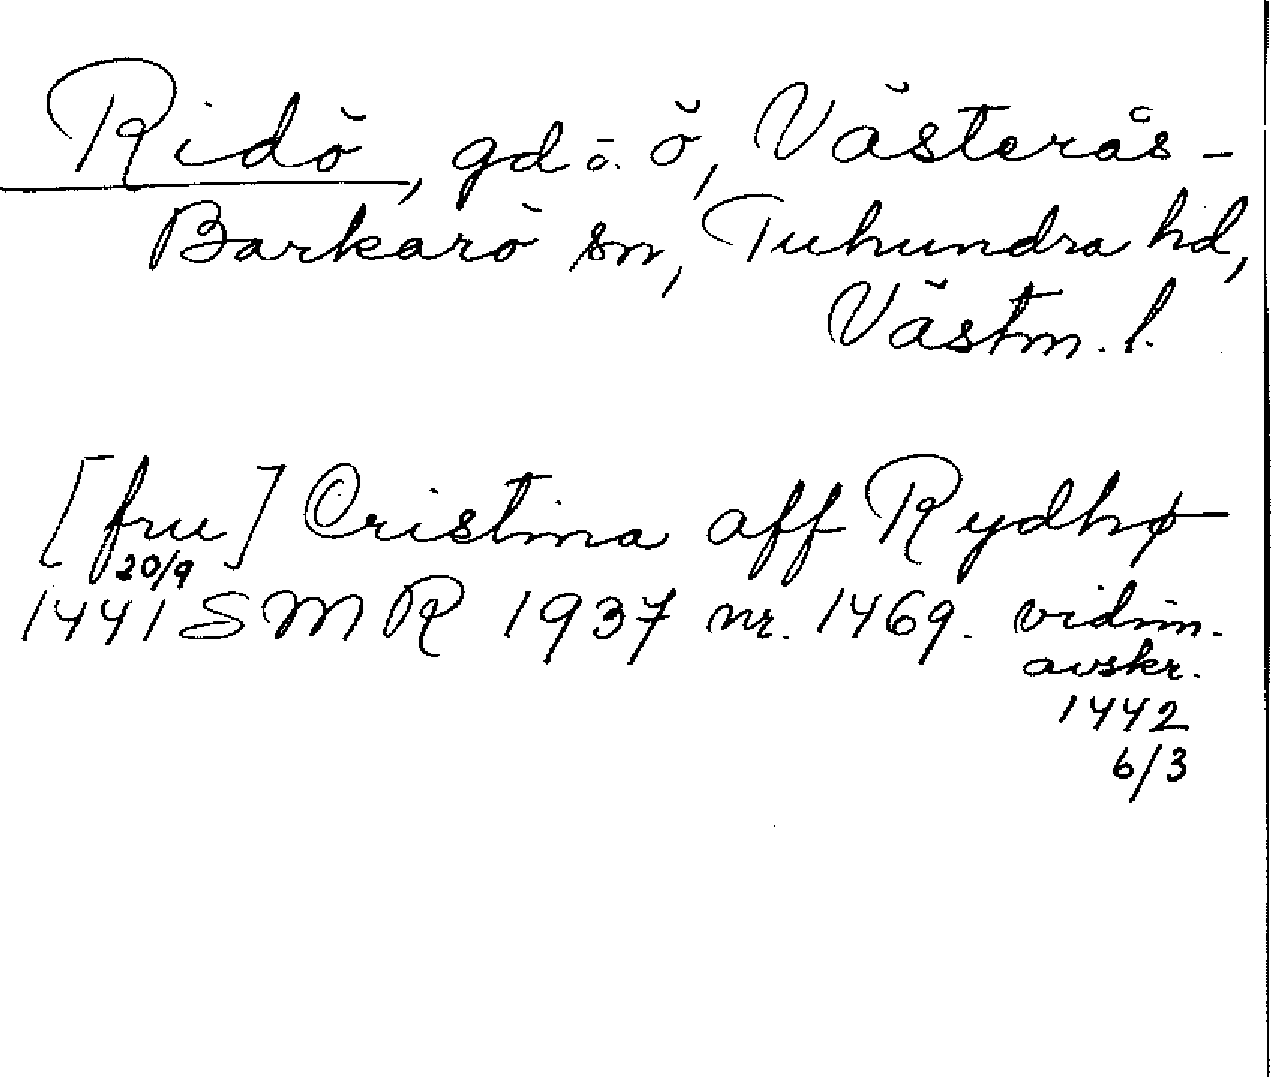 Ridö, gd o. ö, Västerås-
Barkarö sn, Tuhundra hd,
Västm. l.
[fru] Cristina aff Rydhø
20/9
1441 SMR 1937 nr. 1469. vidim.
avskr.
1442
6/3